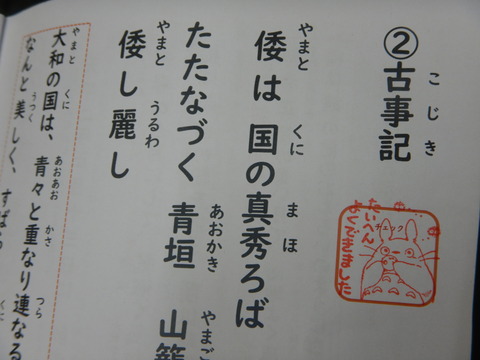 ②古事記
こじき
倭は 国の真秀ろば
やまと くに まほ
たたなづく 青垣 山籠
あおかき やまご
倭し麗し
やまと うるわ
大和の国は、青々と重なり連なる
やまと くに あおあお かさ つら
なんと美しく、すばら
うつく くに
たいへん
よくできました
チェック